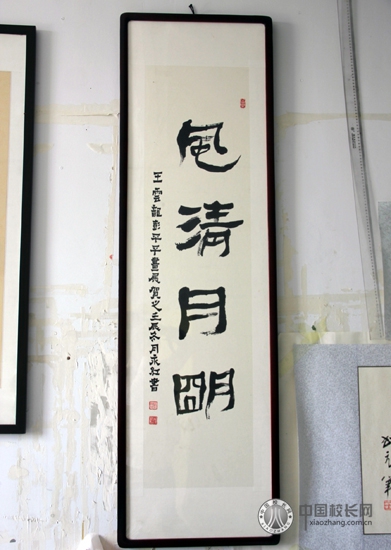 風清月明
王雲龍彭平平畫展賀之壬辰冬月永紅書
中国校长网
xiaozhang.com.cn